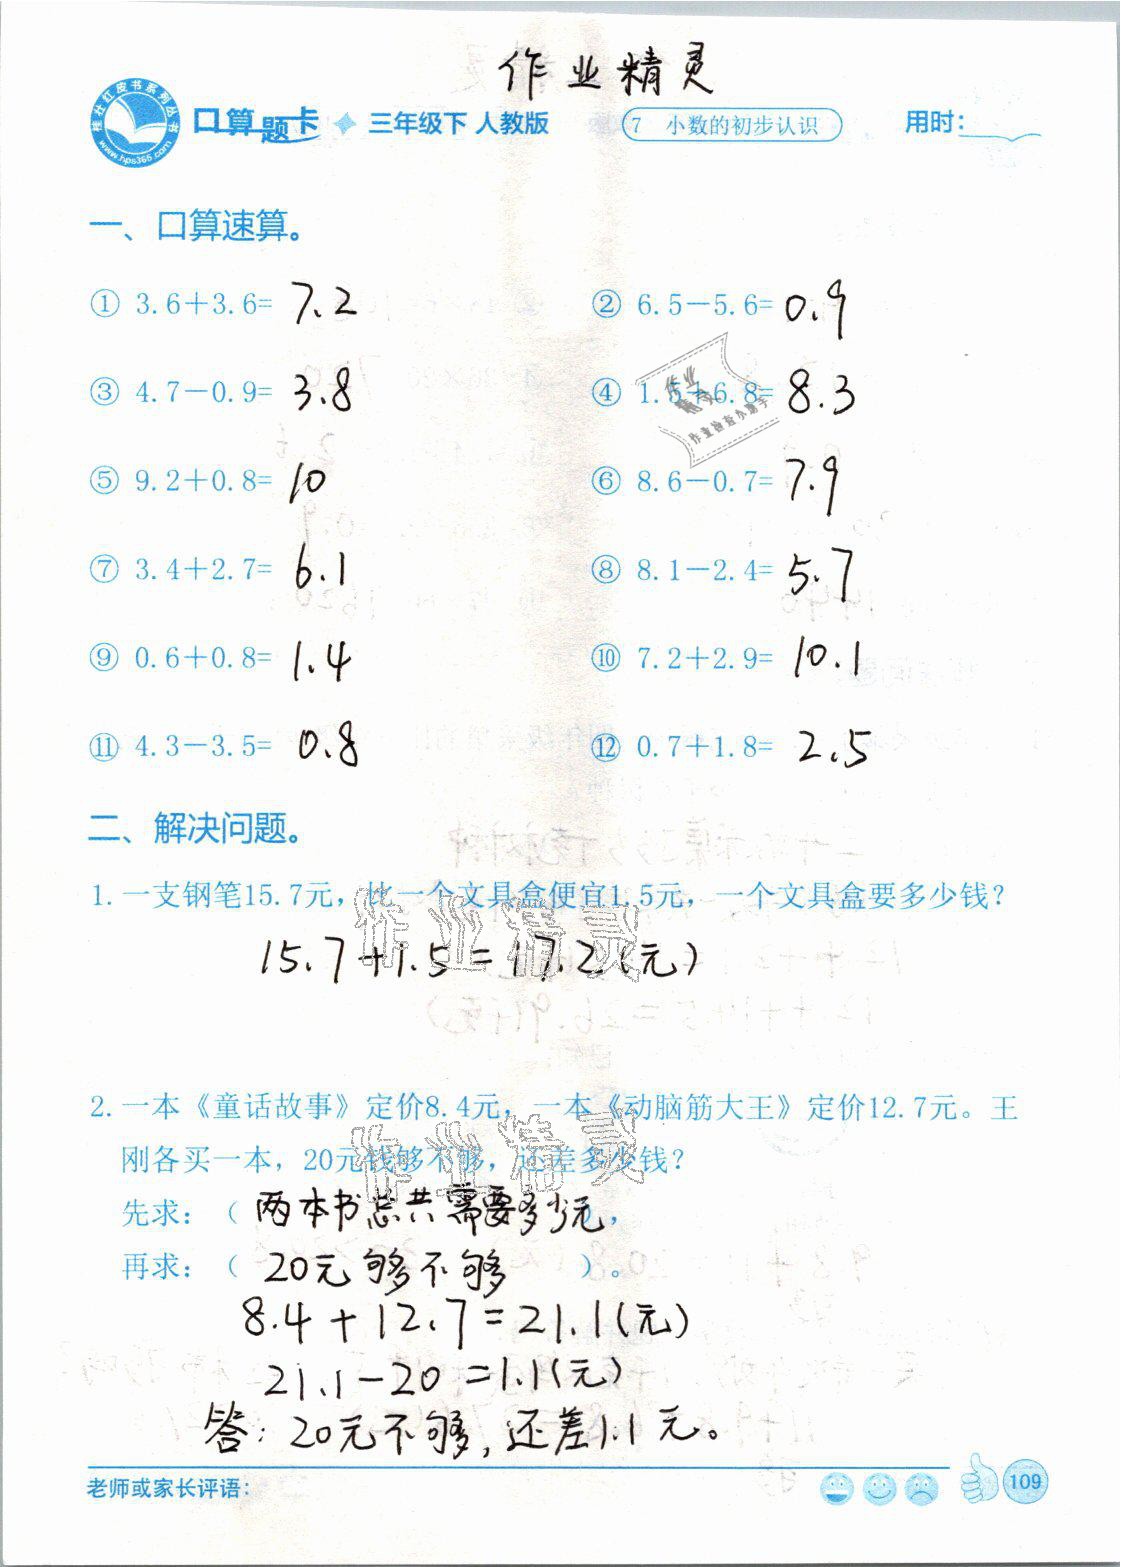 作业精灵
桂壮红皮书系列丛书
www.hps365.com
口算题卡 三年级下 人教版 7 小数的初步认识 用时:
一、口算速算。
① 3.6+3.6= 7.2 ② 6.5-5.6= 0.9
③ 4.7-0.9= 3.8 ④ 1.5+6.8= 8.3
作业精灵
作业检查小助手
⑤ 9.2+0.8= 10 ⑥ 8.6-0.7= 7.9
⑦ 3.4+2.7= 6.1 ⑧ 8.1-2.4= 5.7
⑨ 0.6+0.8= 1.4 ⑩ 7.2+2.9= 10.1
⑪ 4.3-3.5= 0.8 ⑫ 0.7+1.8= 2.5
二、解决问题。
1. 一支钢笔15.7元，比一个文具盒便宜1.5元，一个文具盒要多少钱？
作业精灵
15.7+1.5=17.2(元)
2. 一本《童话故事》定价8.4元，一本《动脑筋大王》定价12.7元。王
刚各买一本，20元钱够不够，还差多少钱？
作业精灵
先求：（ 两本书总共需要多少元 ），
再求：（ 20元够不够 ）。
8.4+12.7=21.1(元)
21.1-20=1.1(元)
答：20元不够，还差1.1元。
老师或家长评语: 109